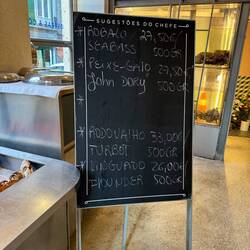 SUGESTÕES DO CHEFE
* ROBALO 27,50€
SEABASS 500GR
* PEIXE-GALO 27,50€
John DORY 500GR
*
* RODOVALHO 33,00€/
TURBOT 500GR
* LINGUADO 26,00€/
FLOUNDER 500GR